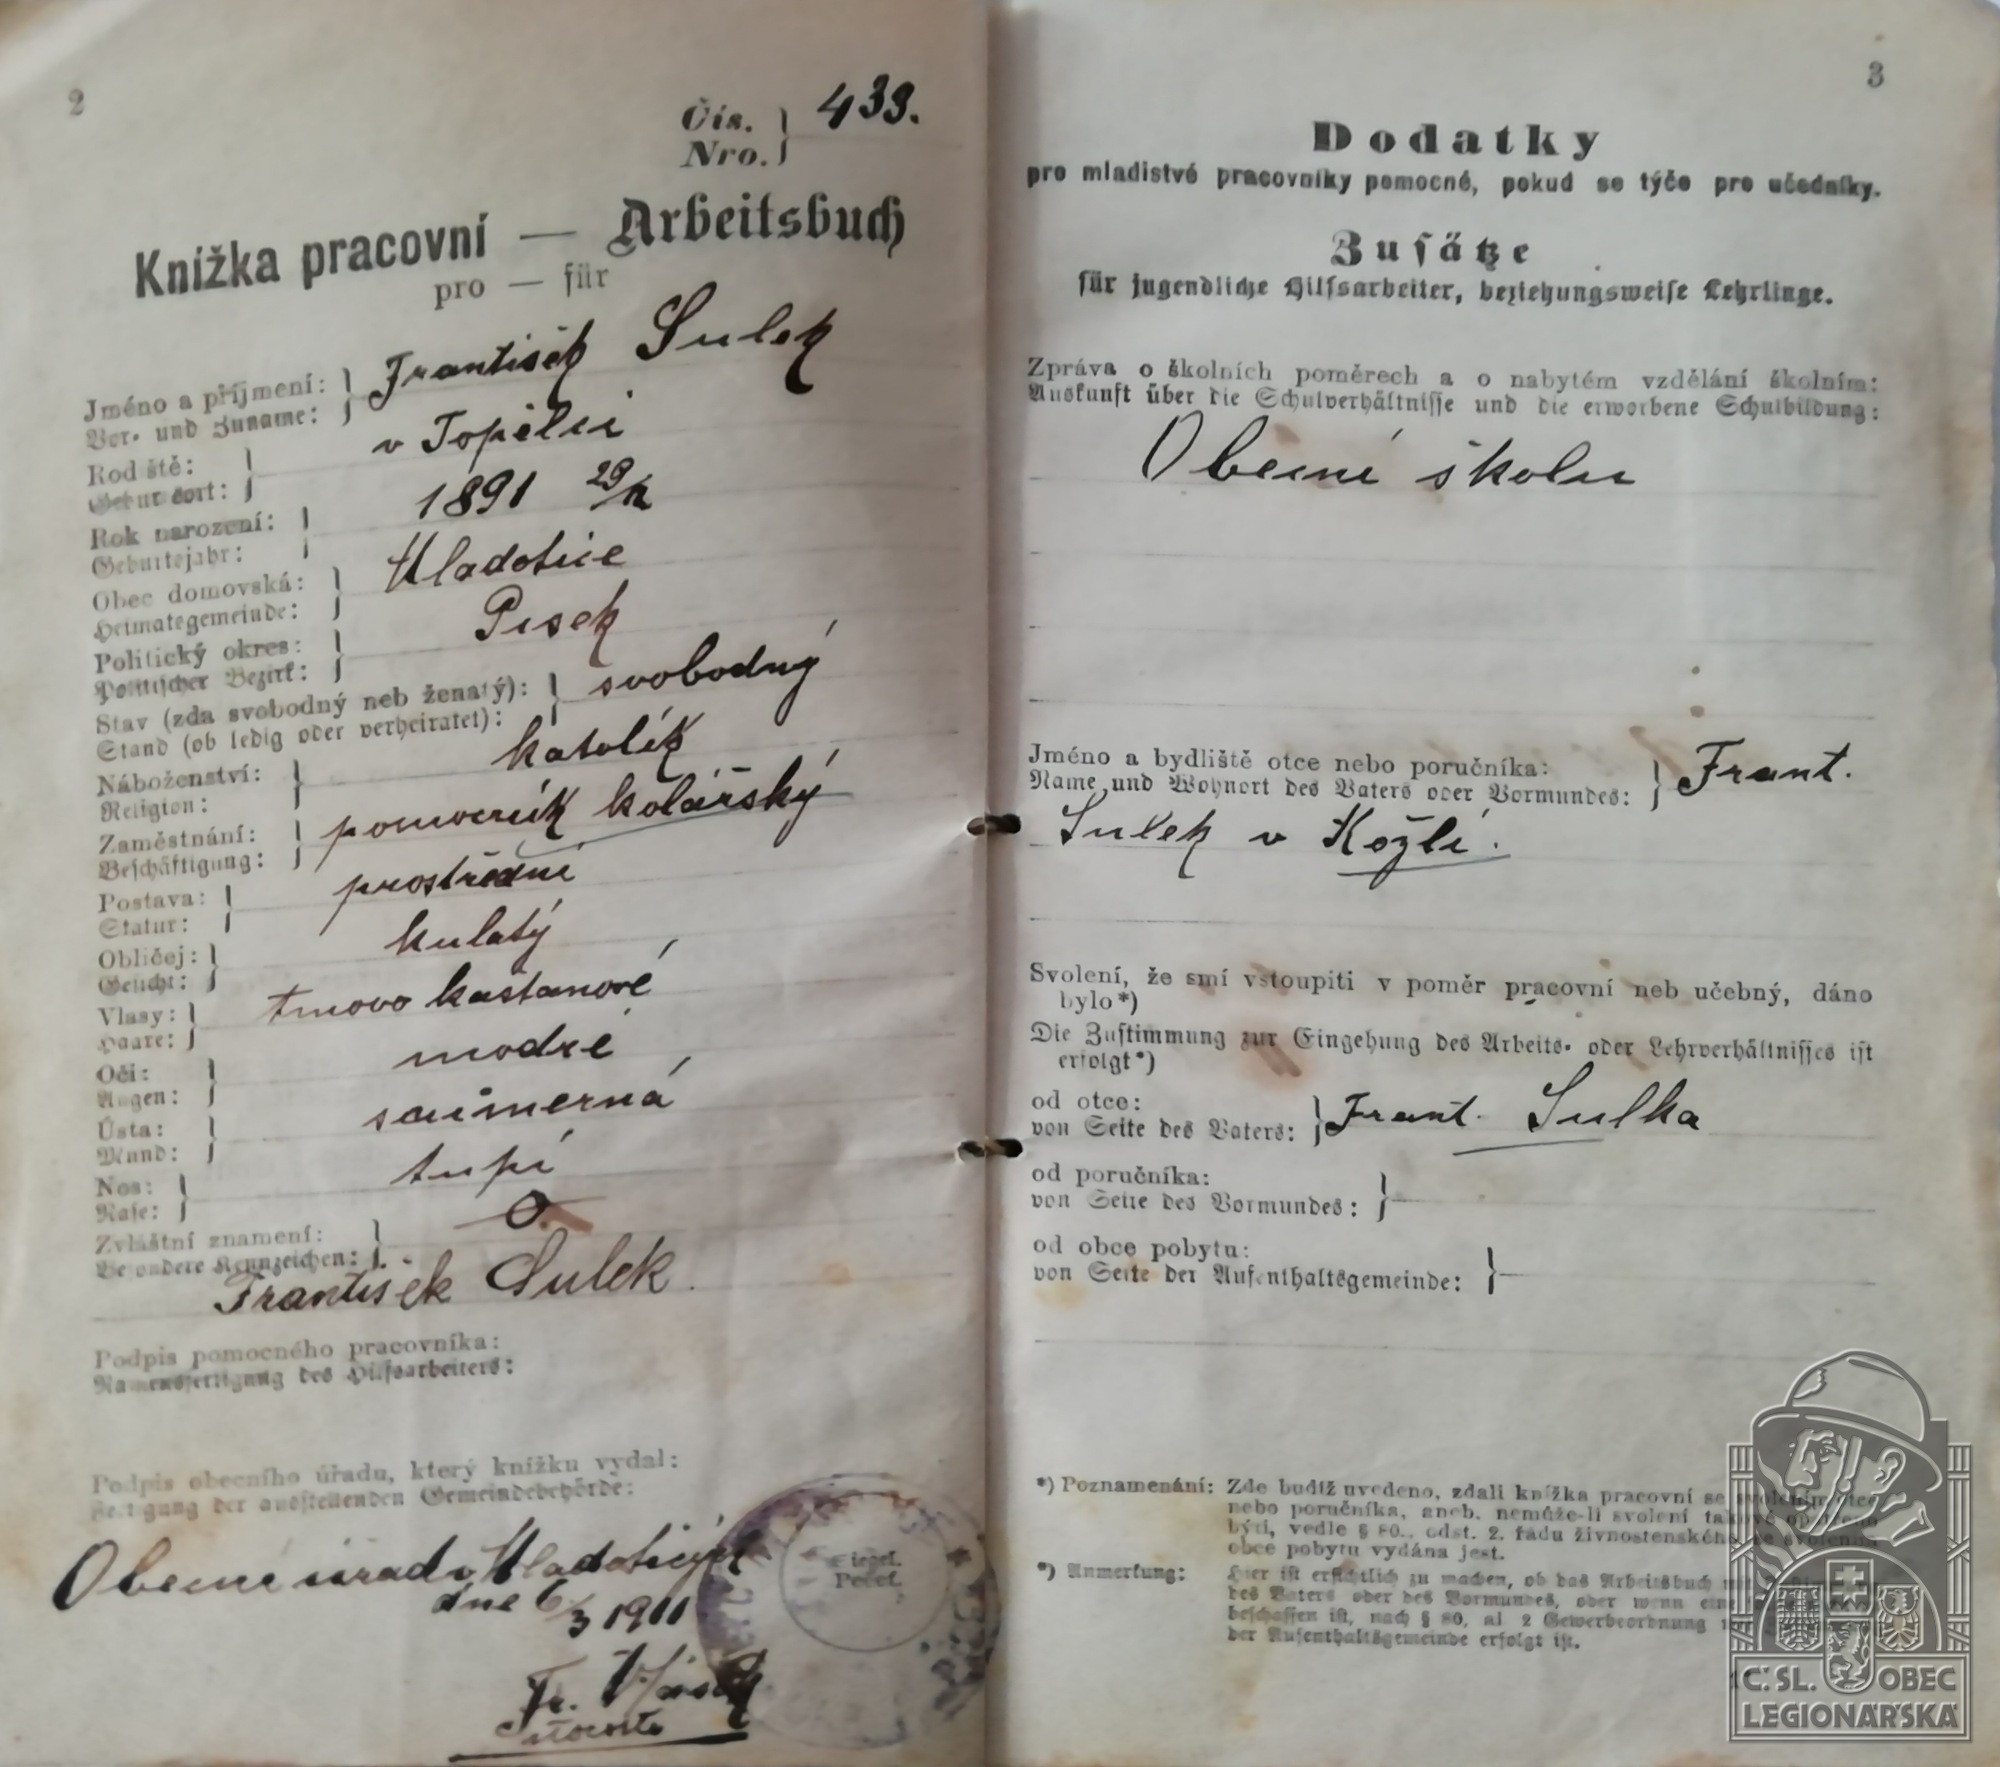 2
Čís.
Nro. } 433.
Knížka pracovní — Arbeitsbuch
pro — für
Jméno a příjmení:
Vor- und Zuname: } František Sulek
Rodiště:
Geburtsort: } v Topělci
Rok narození:
Geburtsjahr: } 1891 29/
Obec domovská:
Heimatsgemeinde: } Mladotice
Politický okres:
Politischer Bezirk: } Pisek
Stav (zda svobodný neb ženatý):
Stand (ob ledig oder verheiratet): } svobodný
Náboženství:
Religion: } katolík
Zaměstnání:
Beschäftigung: } pomocník kolářský
Postava:
Statur: } prostřední
Obličej:
Gesicht: } kulatý
Vlasy:
Haare: } tmovo kaštanové
Oči:
Augen: } modré
Ústa:
Mund: } souměrná
Nos:
Nase: } tupí
Zvláštní znamení:
Besondere Kennzeichen: } 0.
František Sulek.
Podpis pomocného pracovníka:
Namensfertigung des Hilfsarbeiters:
Podpis obecního úřadu, který knížku vydal:
Fertigung der ausstellenden Gemeindebehörde:
Obecní úřad v Mladoticích
dne 6/3 1911
Siegel.
Pečeť.
Fr.
starosta
3
Dodatky
pro mladistvé pracovníky pomocné, pokud se týče pro učedníky.
Zusätze
für jugendliche Hilfsarbeiter, beziehungsweise Lehrlinge.
Zpráva o školních poměrech a o nabytém vzdělání školním:
Auskunft über die Schulverhältnisse und die erworbene Schulbildung:
Obecní školu
Jméno a bydliště otce nebo poručníka:
Name und Wohnort des Vaters oder Vormundes: } Frant.
Sulek v Kožlí.
Svolení, že smí vstoupiti v poměr pracovní neb učebný, dáno
bylo*)
Die Zustimmung zur Eingehung des Arbeits- oder Lehrverhältnisses ist
erfolgt*)
od otce:
von Seite des Vaters: } Frant. Sulka
od poručníka:
von Seite des Vormundes: }
od obce pobytu:
von Seite der Aufenthaltsgemeinde: }
*) Poznamenání: Zde budiž uvedeno, zdali knížka pracovní se svolením otce
nebo poručníka, aneb, nemůže-li svolení takové opatřeno
býti, vedle § 80., odst. 2. řádu živnostenského se svolením
obce pobytu vydána jest.
*) Anmerkung: Hier ist ersichtlich zu machen, ob das Arbeitsbuch mit
des Vaters oder des Vormundes, oder wenn eine
beschaffen ist, nach § 80, al. 2 Gewerbeordnung
der Aufenthaltsgemeinde erfolgt ist.
Č. SL. OBEC
LEGIONÁŘSKÁ